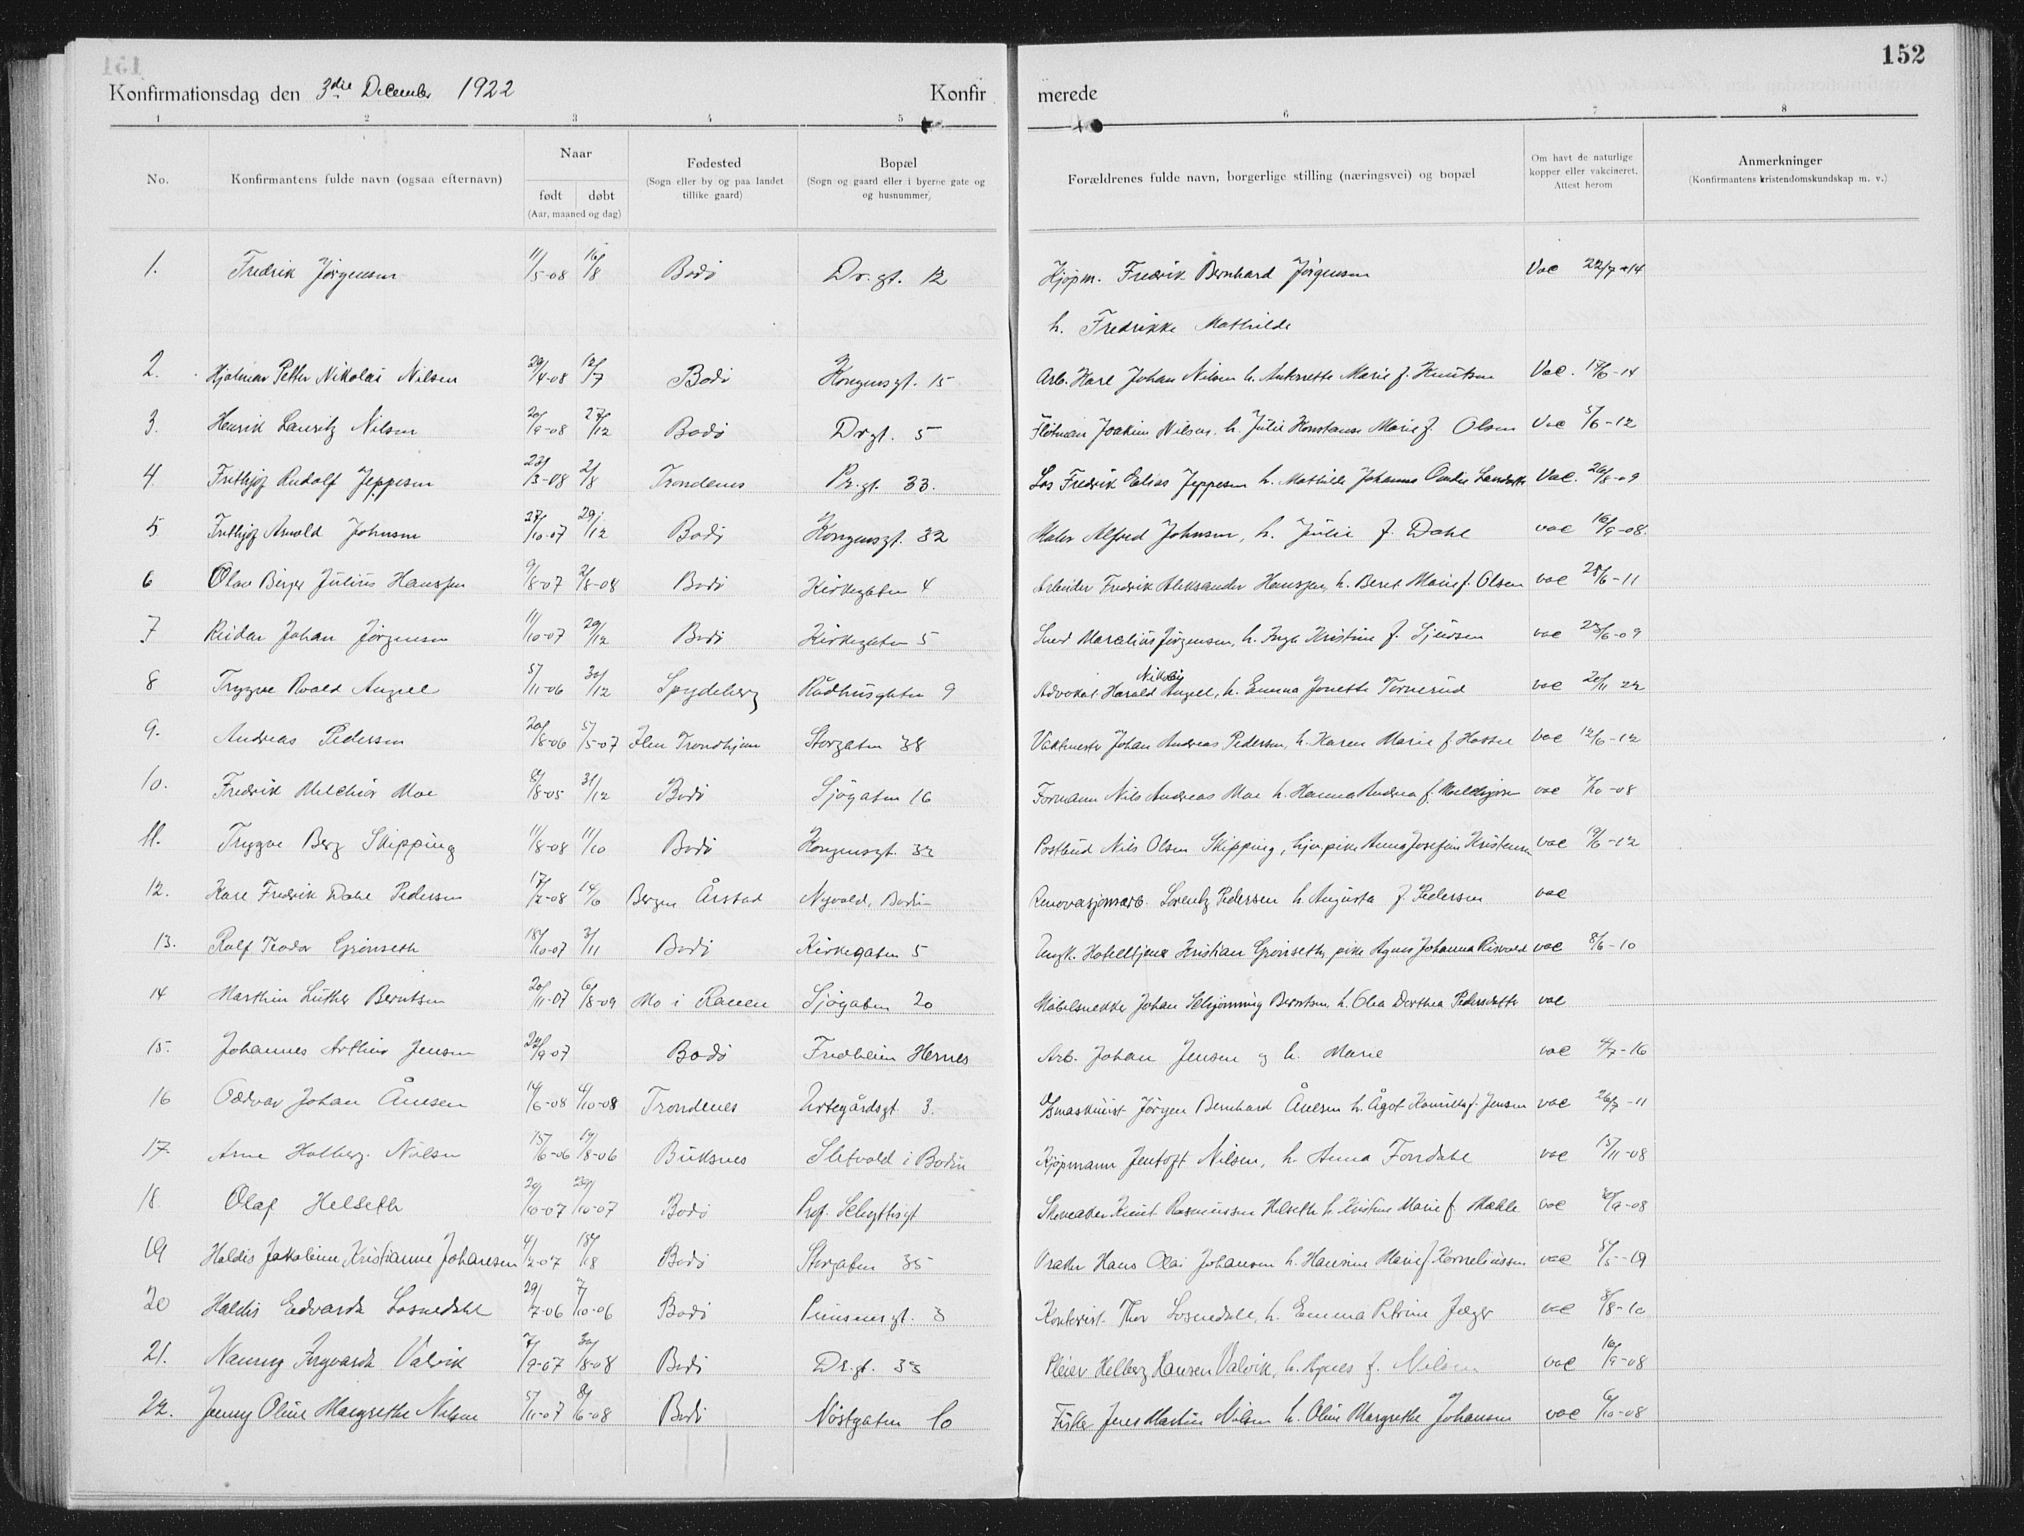 151
152
Konfirmationsdag den 3die December 1922 Konfir merede
1 2 3 4 5 6 7 8
No. Konfirmantens fulde navn (ogsaa efternavn) Naar født døbt (Aar, maaned og dag) Fødested (Sogn eller by og paa landet tillike gaard) Bopæl (Sogn og gaard eller i byerne gate og og husnummer) Forældrenes fulde navn, borgerlige stilling (næringsvei) og bopæl Om havt de naturlige kopper eller vakcineret. Attest herom Anmerkninger (Konfirmantens kristendomskundskap m. v.)
1. Fredrik Jørgensen 11/5-08 16/8 Bodø Dr.gt. 12 Kjøpm. Fredrik Bernhard Jörgensen Vac 22/7-14
h. Fredrikke Mathilde
2. Hjalmar Petter Nikolai Nilsen 29/4-08 12/7 Bodø Kongensgt. 15 Arb. Karl Johan Nilsen h. Antonette Marie f. Knutsen Vac. 17/6-14
3. Henrik Lauritz Nilsen 20/9-08 27/12 Bodø Dr.gt. 5 Joakim Nilsen h. Julie Konstanse Marie f. Olsen Vac 5/6-12
4. Frithjof Rudolf Jeppesen 23/3-08 2/8 Trondenes Pr.gt. 33. Los Fredrik Elias Jeppesen h. Mathilde Johanna Vac. 26/8-09
5 Frithjof Arnold Johnsen 27/10-07 29/12 Bodø Kongensgt. 32 Maler Alfred Johnsen, h. Julie f. Dahl vac 16/9-08.
6 Olav Birger Julius Hanssen 9/8-07 2/8-08 Bodø Kirkegaten 4 Arbeider Fredrik Aleksander Hanssen, h. Beret Marie f. Olsen vac 28/6-11
7 Reidar Johan Jørgensen 11/10-07 29/12 Bodø Kirkegaten 5 Smed Marcelius Jörgensen, h. Inga Kristine f. Sjursen vac 23/6-09
8 Trygve Roald Angell 5/11-06 30/12 Spydeberg Rådhusgaten 9 Advokat Harald Nikolaj Angell, h. Emma Jonette Tornerud vac 20/11 22
9. Andreas Pedersen 20/8-06 5/5-07 Ilen Trondhjem Storgaten 38 Vaktmester Johan Andreas Pedersen, h. Karen Marie f. vac 12/6-12
10. Fredrik Melchior Moe 8/8-05 31/12 Bodø Sjøgaten 16 Formann Nils Andreas Moe h. Hanna Andrea f. vac 7/10-08
11. Trygve Berg Skipping 11/8-08 11/10 Bodø Kongensgt. 32 Postbud Nils Olsen Skipping, pike Anna Josefine Kristensen vac 19/6-12
12. Kare Fredrik Dahl Pedersen 17/2-08 14/6 Bergen Årstad Nyvold, Bodin Renovasjonsarb. Lorentz Pedersen h. Augusta f. Pedersen vac
13. Rolf Teodor Grønseth 18/10-07 3/11 Bodø Kirkegaten 5 Ungk. Hotelltjener Kristian Grønseth, pike Agnes Johanna Risvold vac 8/6-10
14 Marthin Luther Berntsen 20/11-07 6/8-09 Mo i Ranen Sjøgaten 20 Møbelsnekker Johan Berntsen, h. Olea Dorthea Pedersdatter vac
15. Johannes Arthur Jensen 22/9 07 Bodø Fredheim Hernes Arb. Johan Jensen og h. Marie vac 4/7-16
16 Oddvar Johan Ånesen 14/6-08 4/10-08 Trondenes Urtegårdsgt 3. Jørgen Bernhard Ånesen h. Ågot f. Jensen vac 26/7-11
17. Arne Holberg Nilsen 15/6-06 19/8-06 Buksnes Sletvold i Bodin Kjøpmann Jentoft Nilsen, h. Anna Fondahl vac 15/11-08
18 Olaf Helseth 20/10-07 Bodø Prof. Schyttesgt Skomaker Knut Rasmussen Helseth h. Kristine Marie f. Mæhle vac
19 Haldis Jakobine Kristianne Johansen 4/2-07 18/8 Bodø Storgaten 35 Vraker Hans Olai Johansen h. Hansine Marie f. Korneliussen vac 5/5-19
20 Haldis Edvarda Losnedahl 29/7-06 7/10-06 Bodø Prinsensgt. 3 Kontorist Thor Losnedahl, h. Emma Petrine Jæger vac 8/8-10
21. Nanny Ingvarda Valvik 7/9-07 30/8-08 Bodø Dr.gt. 33 Pleier Helberg Hansen Valvik, h. Agnes f. Nilsen vac 16/9-08
22. Jenny Oline Margrethe Nilsen 5/11-07 8/6-08 Bodø Nöstgaten 10 Fisker Jens Martin Nilsen h. Oline Margrethe Johansen vac 6/10-08